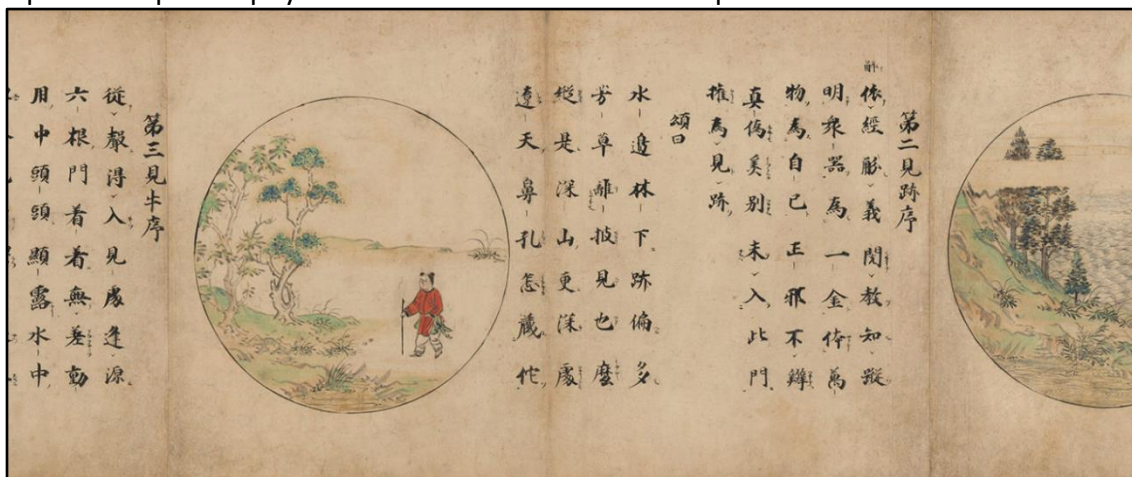 第二見跡序
解
依經義閲教知蹤
明衆器為一金体萬
物為自己正邪不辨
真偽奚別未入此門
権為見跡
頌曰
水邉林下跡偏多
芳草離披見也麼
縦是深山更深處
遼天鼻孔怎蔵他
第三見牛序
從聲得入見處逢源
六根門着着無差動
用中頭頭顯露水中